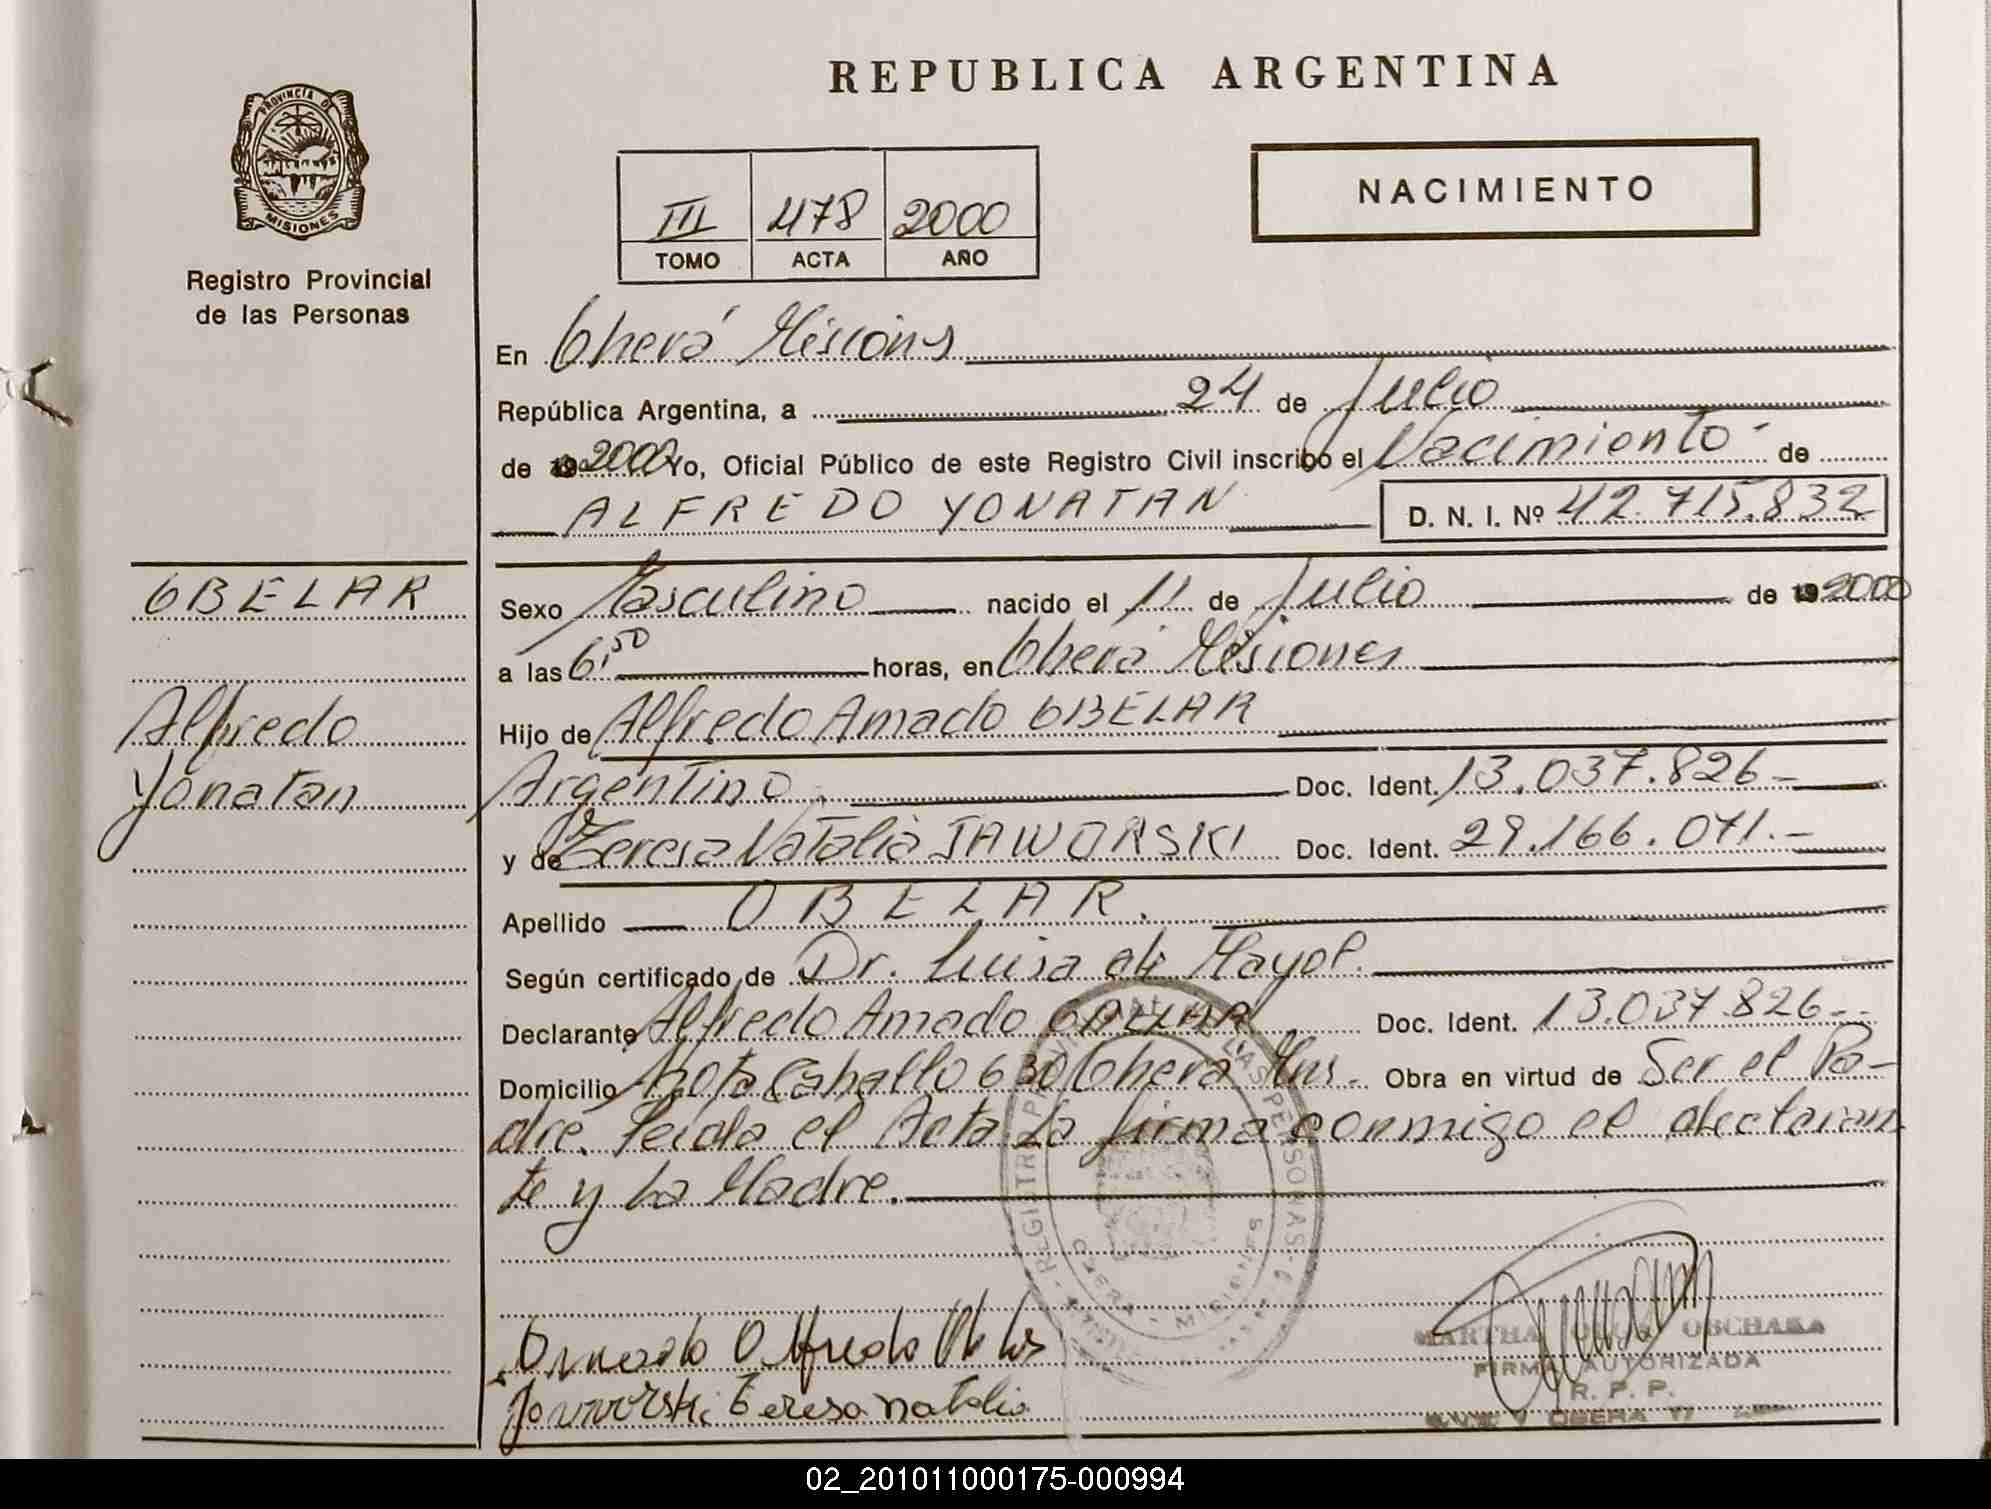 REPUBLICA ARGENTINA
PROVINCIA DE
MISIONES
Registro Provincial
de las Personas
III 478 2000
TOMO ACTA AÑO
NACIMIENTO
En Oberá Misiones
República Argentina, a 24 de Julio
de 2000 Yo, Oficial Público de este Registro Civil inscribo el Nacimiento de
ALFREDO YONATAN D. N. I. Nº 42.715.832
OBELAR
Alfredo
Yonatan
Sexo Masculino nacido el 11 de Julio de 2000
a las 6,50 horas, en Oberá Misiones
Hijo de Alfredo Amado OBELAR
Argentino. Doc. Ident. 13.037.826.-
y de Teresa Natalia JAWORSKI Doc. Ident. 29.166.071.-
Apellido OBELAR.
Según certificado de Dr. Luisa de Mayol.
Declarante Alfredo Amado OBELAR Doc. Ident. 13.037.826.-
Domicilio Caballo 630 Oberá Mns. Obra en virtud de Ser el Pa-
dre. Leída el Acta la firma conmigo el declaran
te y La Madre.
LAS PERSONAS
OBERA - MISIONES
Jaworski Teresa Natalia
MARTHA OLGA OBCHAKA
FIRMA AUTORIZADA
R. P. P.
OBERA
02_201011000175-000994